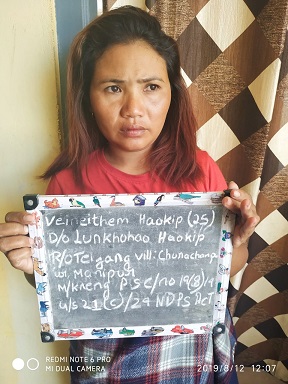 Veineithem Haokip (25)
D/o Lunkhohao Haokip
R/o Teigang vill: Churachanpur
Manipur
M/Kneng P.S C/no 19(8)19
u/s 21(c)/29 NDPS ACT
REDMI NOTE 6 PRO
MI DUAL CAMERA
2019/8/12 12:07